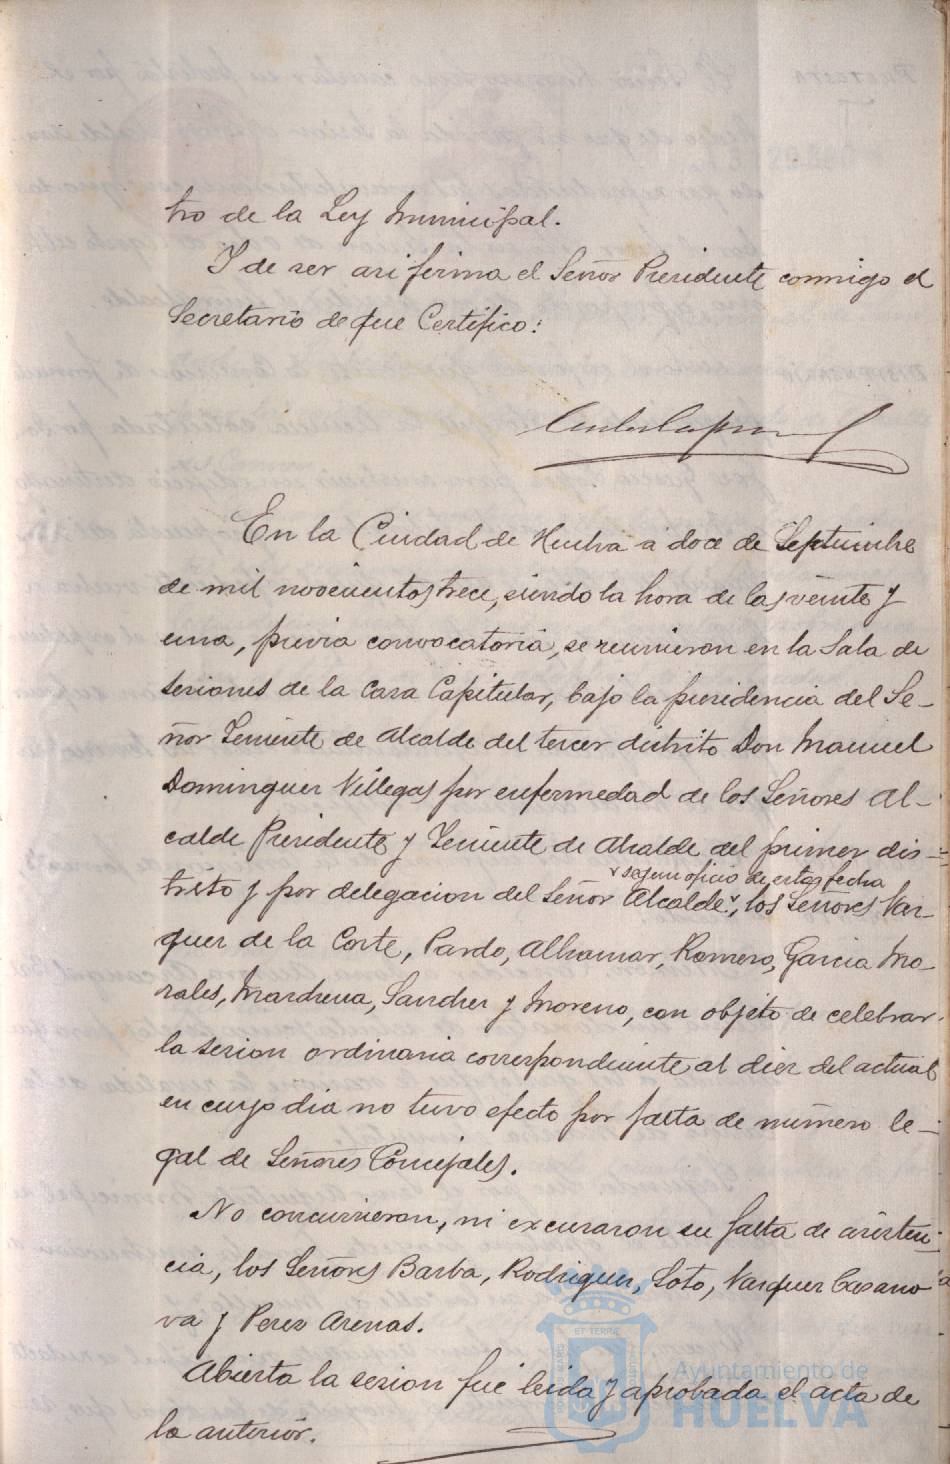 tro de la Ley Municipal.
Y de ser asi firma el Señor Presidente conmigo el
Secretario de que Certifico:
En la Ciudad de Huelva a doce de Septiembre
de mil novecientos trece, siendo la hora de las veinte y
una, previa convocatoria, se reunieron en la Sala de
sesiones de la Casa Capitular, bajo la presidencia del Se-
ñor Teniente de Alcalde del tercer distrito Don Manuel
Dominguez Villegas por enfermedad de los Señores Al-
calde Presidente y Teniente de Alcalde del primer dis-
segun oficio de esta fecha
trito y por delegacion del Señor Alcalde, los Señores Vaz-
quez de la Corte, Pardo, Alhamar, Romero, Garcia Mo-
rales, Mardena, Sanchez y Moreno, con objeto de celebrar
la sesion ordinaria correspondiente al diez del actual
en cuyo dia no tuvo efecto por falta de número le-
gal de Señores Concejales.
No concurrieron, ni excusaron su falta de asisten-
cia, los Señores Barba, Rodriguez, Soto, Vazquez Casano-
va y Perez Arenas.
Abierta la sesion fue leida y aprobada el acta de
la anterior.
Ayuntamiento de
HUELVA